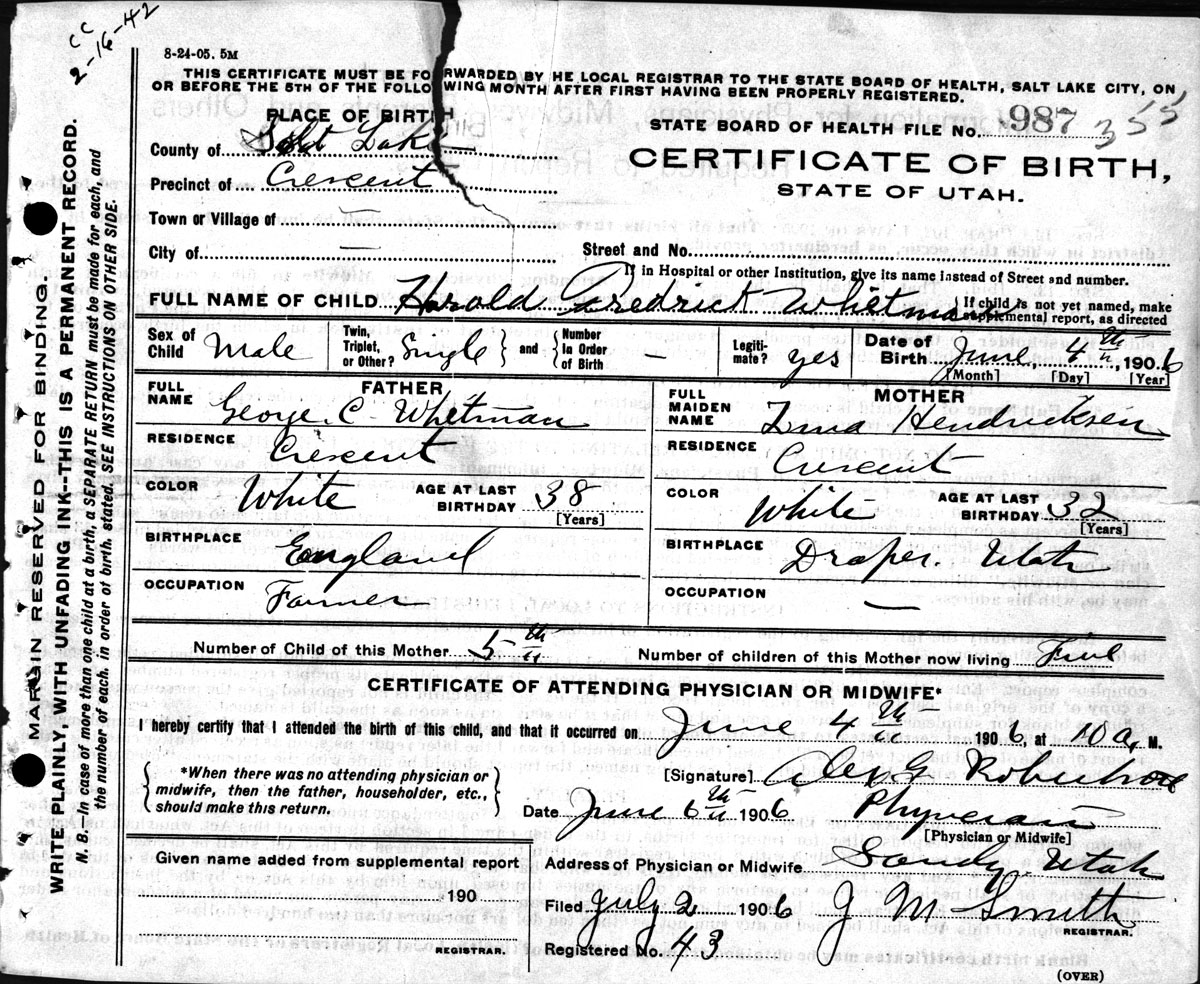 CC
2-16-42
8-24-05. 5M
THIS CERTIFICATE MUST BE FORWARDED BY HE LOCAL REGISTRAR TO THE STATE BOARD OF HEALTH, SALT LAKE CITY, ON
OR BEFORE THE 5TH OF THE FOLLOWING MONTH AFTER FIRST HAVING BEEN PROPERLY REGISTERED.
PLACE OF BIRTH
STATE BOARD OF HEALTH FILE No. 987 355
County of Salt Lake
CERTIFICATE OF BIRTH,
Precinct of Crescent
STATE OF UTAH.
Town or Village of —
City of — Street and No.
If in Hospital or other Institution, give its name instead of Street and number.
FULL NAME OF CHILD Harold Fredrick Whitman { If child is not yet named, make
supplemental report, as directed
Sex of Child Male Twin, Triplet, or Other? Single } and { Number In Order of Birth — Legiti-mate? yes Date of Birth June, 4th, 1906
[Month] [Day] [Year]
FATHER MOTHER
FULL NAME George C. Whitman FULL MAIDEN NAME Hendricksen
RESIDENCE Crescent RESIDENCE Crescent
COLOR White AGE AT LAST BIRTHDAY 38 [Years] COLOR White AGE AT LAST BIRTHDAY 32 [Years]
BIRTHPLACE England BIRTHPLACE Draper. Utah
OCCUPATION Farmer OCCUPATION —
Number of Child of this Mother 5th Number of children of this Mother now living Five
CERTIFICATE OF ATTENDING PHYSICIAN OR MIDWIFE*
I hereby certify that I attended the birth of this child, and that it occurred on June 4th 1906, at 10 a. M.
{ *When there was no attending physician or
midwife, then the father, householder, etc.,
should make this return. }
[Signature] Alex. G.
Date June 6th 1906 Physician
[Physician or Midwife]
Given name added from supplemental report
190
REGISTRAR.
Address of Physician or Midwife Sandy Utah
Filed July 2 1906 J M Smith
REGISTRAR.
Registered No. 43
(OVER)
MARGIN RESERVED FOR BINDING.
WRITE PLAINLY, WITH UNFADING INK--THIS IS A PERMANENT RECORD.
N. B. In case of more than one child at a birth, a SEPARATE RETURN must be made for each, and
the number of each, in order of birth, stated. SEE INSTRUCTIONS ON OTHER SIDE.